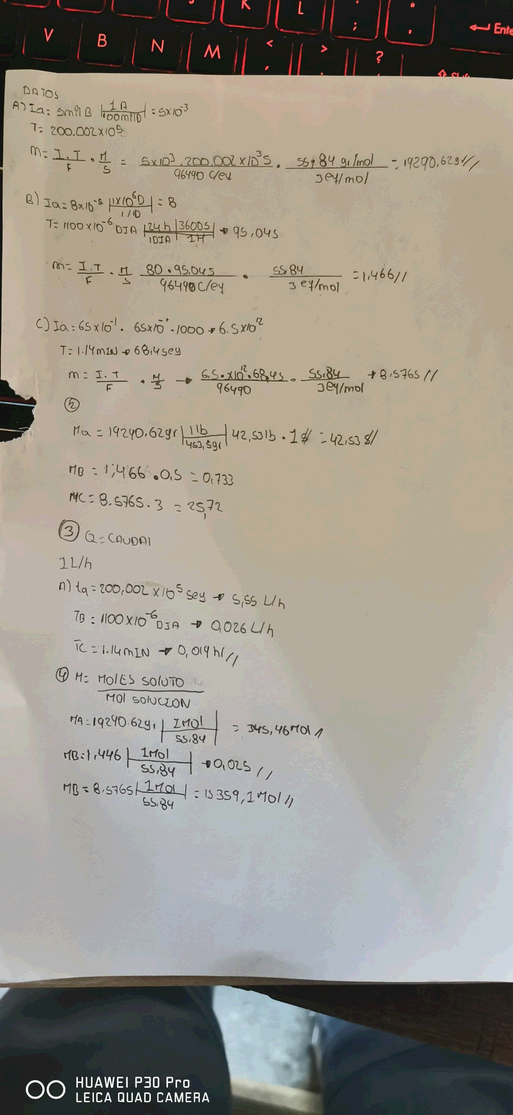 V B N M < > ? ; : ← Ente
K L
DATOS
A) Ia = 5mAB | 1A / 1000mAD | = 5x10⁻³
T = 200.002x10⁵
m = I.T / F . M / S = 5x10³.200.002x10³s / 96490 C/eq . 55,84 gr/mol / 3eq/mol = 19290.62g //
B) Ia = 8x10⁻⁵ | 1x10⁶D / 1 MD | = 8
T = 1100x10⁻⁶ DIA | 24h / 1DIA | 3600s / 1H → 95,04s
m = I.T / F . M / S 80.95.04s / 96490 C/ey . 55.84 / 3 eq/mol = 1,466 //
C) Ia = 65x10⁻¹ . 65x10⁻¹.1000 → 6.5x10¹²
T = 1.14 MIN → 68,4 sey
m = I.T / F . M / S → 6.5.x10¹².68,4s / 96490 . 55.84 / 3eq/mol → 8.5765 //
②
Ma = 19290.62gr | 1lb / 453,5gr | 42,53lb . 1$ = 42,53$ //
MB = 1,466 . 0,5 = 0,733
MC = 8.5765 . 3 = 25,72
③ Q = CAUDAl
1L/h
A) ta = 200,002 x10⁵ sey → 5,55 L/h
TB = 1100x10⁻⁶ DIA → 0,026 L/h
TC = 1.14 MIN → 0,019 hr //
④ M = MOLES SOLUTO / MOl SOLUCION
MA = 19290.62gr | 1MOl / 55.84 | = 345,46 MOl
MB = 1,446 | 1MOl / 55.84 | → 0,025 //
MB = 8.5765 | 1MOl / 55.84 | = 15359,1 MOl //
HUAWEI P30 Pro
LEICA QUAD CAMERA